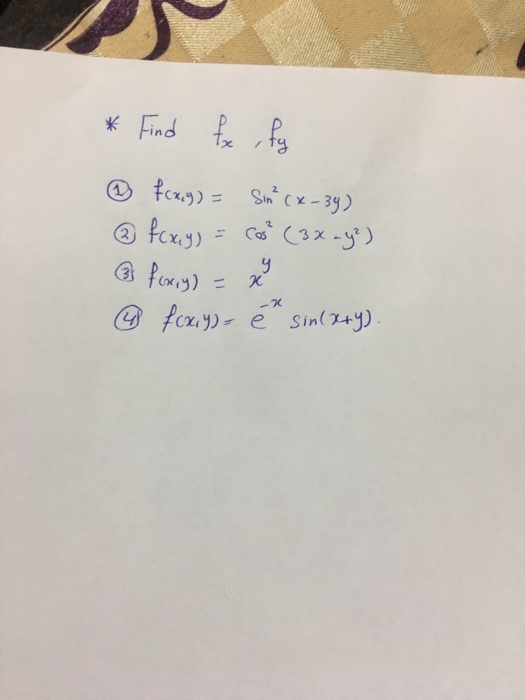 * Find fx , fy
① f(x,y) = Sin² (x - 3y)
② f(x,y) = Cos² (3x - y²)
③ f(x,y) = x^y
④ f(x,y) = e^-x sin(x+y).